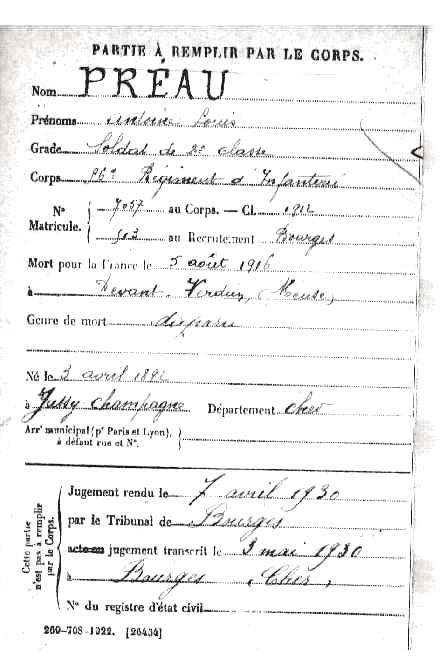 PARTIE À REMPLIR PAR LE CORPS.
Nom PRÉAU
Prénoms Antoine Louis
Grade Soldat de 2e classe
Corps Régiment d'Infanterie
N° Matricule. { 7057 au Corps. — Cl. 1912
au Recrutement Bourges
Mort pour la France le 5 août 1916
à Devant Verdun, (Meuse)
Genre de mort disparu
Né le 3 avril 1892
à Jussy Champagne Département Cher
Arrt municipal (pr Paris et Lyon), à défaut rue et N°. }
Cette partie n'est pas à remplir par le Corps.
Jugement rendu le 7 avril 1930
par le Tribunal de Bourges
acte ou jugement transcrit le 3 mai 1930
à Bourges (Cher)
N° du registre d'état civil
260-708-1922. [26434]